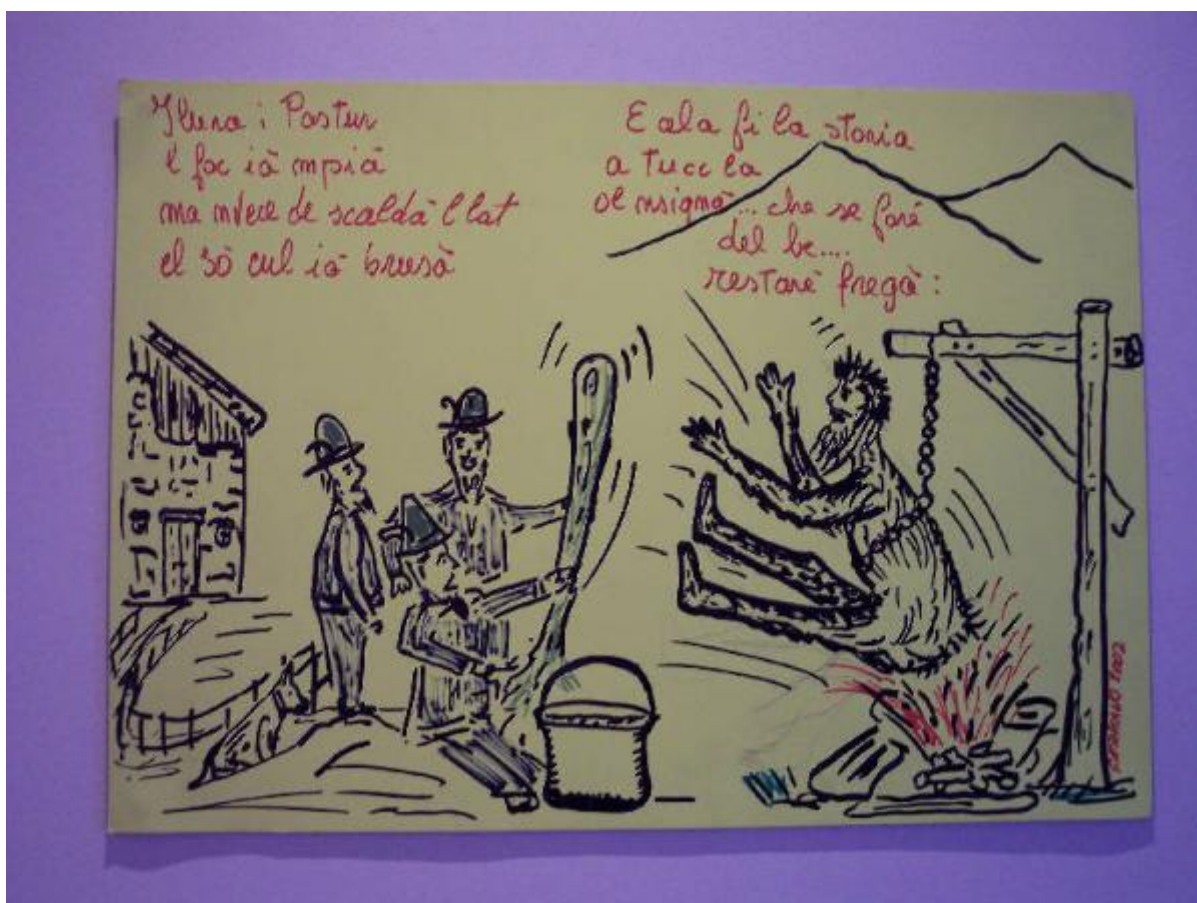 Ilura i Pastur
l foc ià mpià
ma nvece de scaldà l lat
el sò cul ià brusà
E ala fi la storia
a tucc la
ol nsignà... che se farè
del be....
restarè fregà:
2002